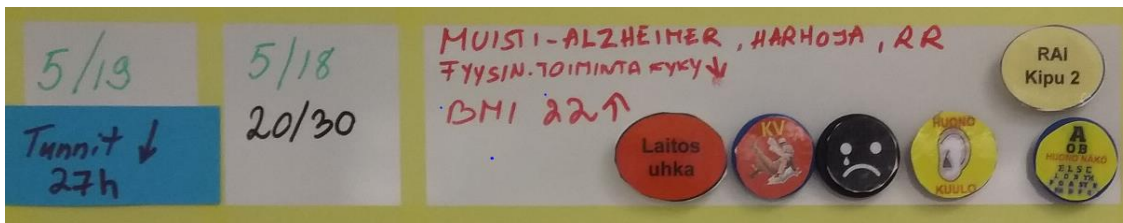 5/19
Tunnit ↓
27h
5/18
20/30
MUISTI-ALZHEIMER, HARHOJA, RR
FYYSIN.TOIMINTAKYKY ↓
BMI 22 ↑
Laitos
uhka
KV
HUONO
KUULO
RAI
Kipu 2
A
OB
HUONO NÄKÖ
ELSC